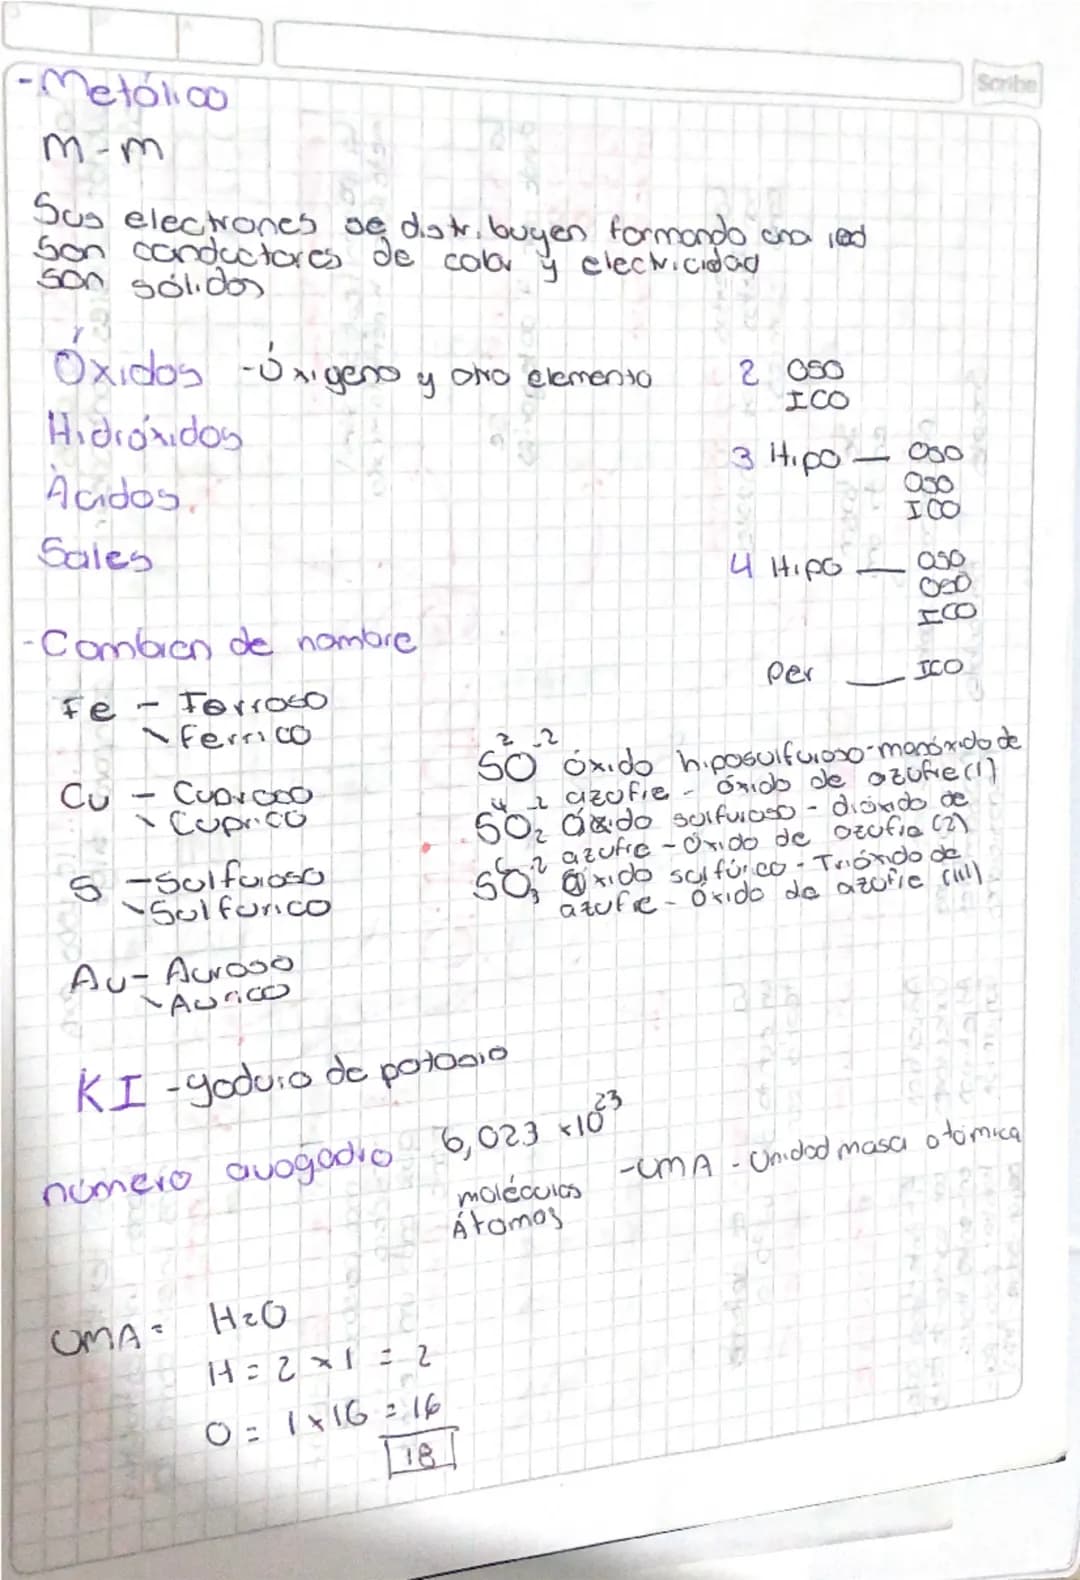 Scribe
-Metálico
m-m
Sus electrones se distribuyen formando una red
Son conductores de calor y electricidad
Son sólidos
Óxidos -Óxigeno y otro elemento
Hidróxidos
Ácidos.
Sales
2 OSO
ICO
3 Hipo — OSO
OSO
ICO
4 Hipo — OSO
OSO
ICO
Per — ICO
-Cambian de nombre
Fe - Ferroso
- Ferrico
Cu - Cuproso
- Cuprico
S - Sulfuroso
- Sulfurico
Au - Auroso
- Aurico
SO 2 -2 óxido hiposulfuroso-monóxido de
azufre - óxido de azufre (1)
SO2 4 -2 óxido sulfuroso - dióxido de
azufre - Óxido de azufre (2)
SO3 6 -2 óxido sulfúrico - Trióxido de
azufre - Óxido de azufre (III)
KI - yoduro de potasio
número avogadro 6,023 x10²³
moléculas
Átomos
-UMA - Unidad masa atómica
UMA = H2O
H = 2 x 1 = 2
O = 1 x 16 = 16
18